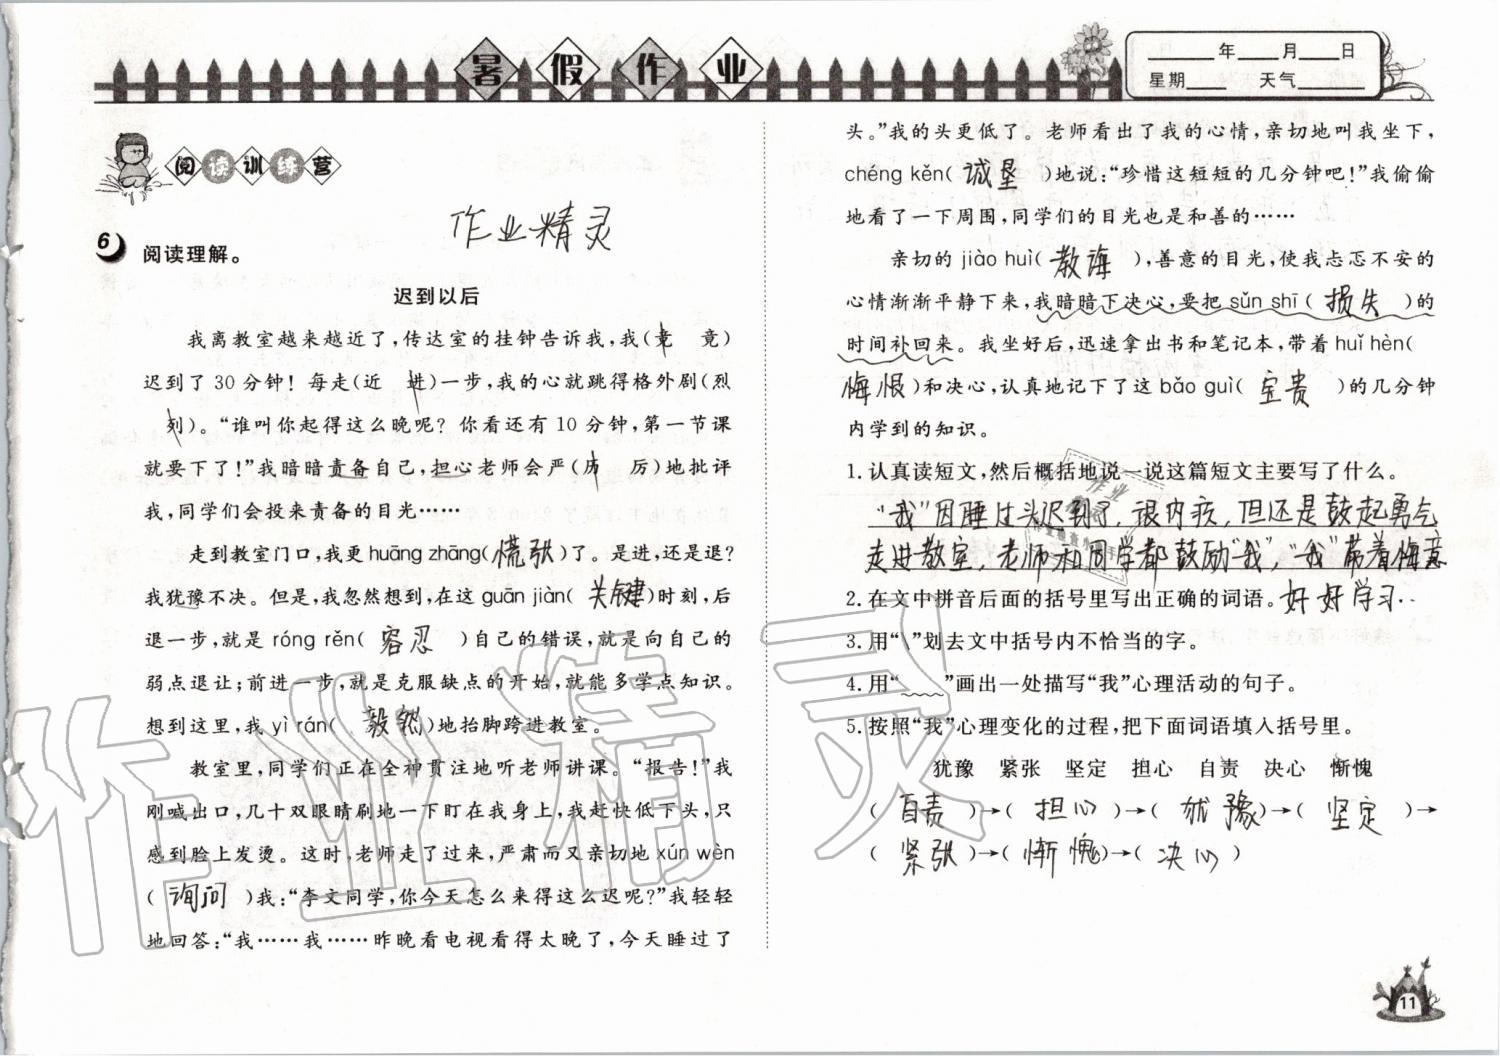 暑假作业
____年____月____日
星期____ 天气____
阅读训练营
作业精灵
6 阅读理解。
迟到以后
我离教室越来越近了,传达室的挂钟告诉我,我(竟 竞)
迟到了30分钟!每走(近 进)一步,我的心就跳得格外剧(烈
列)。“谁叫你起得这么晚呢?你看还有10分钟,第一节课
就要下了!”我暗暗责备自己,担心老师会严(历 厉)地批评
我,同学们会投来责备的目光……
走到教室门口,我更huāng zhāng(慌张)了。是进,还是退?
我犹豫不决。但是,我忽然想到,在这guān jiàn(关键)时刻,后
退一步,就是róng rěn(容忍)自己的错误,就是向自己的
弱点退让;前进一步,就是克服缺点的开始,就能多学点知识。
想到这里,我yì rán(毅然)地抬脚跨进教室。
教室里,同学们正在全神贯注地听老师讲课。“报告!”我
刚喊出口,几十双眼睛刷地一下盯在我身上,我赶快低下头,只
感到脸上发烫。这时,老师走了过来,严肃而又亲切地xún wèn
(询问)我:“李文同学,你今天怎么来得这么迟呢?”我轻轻
地回答:“我……我……昨晚看电视看得太晚了,今天睡过了
头。”我的头更低了。老师看出了我的心情,亲切地叫我坐下,
chéng kěn(诚恳)地说:“珍惜这短短的几分钟吧!”我偷偷
地看了一下周围,同学们的目光也是和善的……
亲切的jiào huì(教诲),善意的目光,使我忐忑不安的
心情渐渐平静下来,我暗暗下决心,要把sǔn shī(损失)的
时间补回来。我坐好后,迅速拿出书和笔记本,带着huǐ hèn(
悔恨)和决心,认真地记下了这bǎo guì(宝贵)的几分钟
内学到的知识。
1.认真读短文,然后概括地说一说这篇短文主要写了什么。
“我”因睡过头迟到了,很内疚,但还是鼓起勇气
走进教室,老师和同学都鼓励“我”,“我”带着悔意
好好学习..
2.在文中拼音后面的括号里写出正确的词语。
3.用“\”划去文中括号内不恰当的字。
4.用“﹏﹏”画出一处描写“我”心理活动的句子。
5.按照“我”心理变化的过程,把下面词语填入括号里。
犹豫 紧张 坚定 担心 自责 决心 惭愧
(自责)→(担心)→(犹豫)→(坚定)→
(紧张)→(惭愧)→(决心)
11
作业精灵